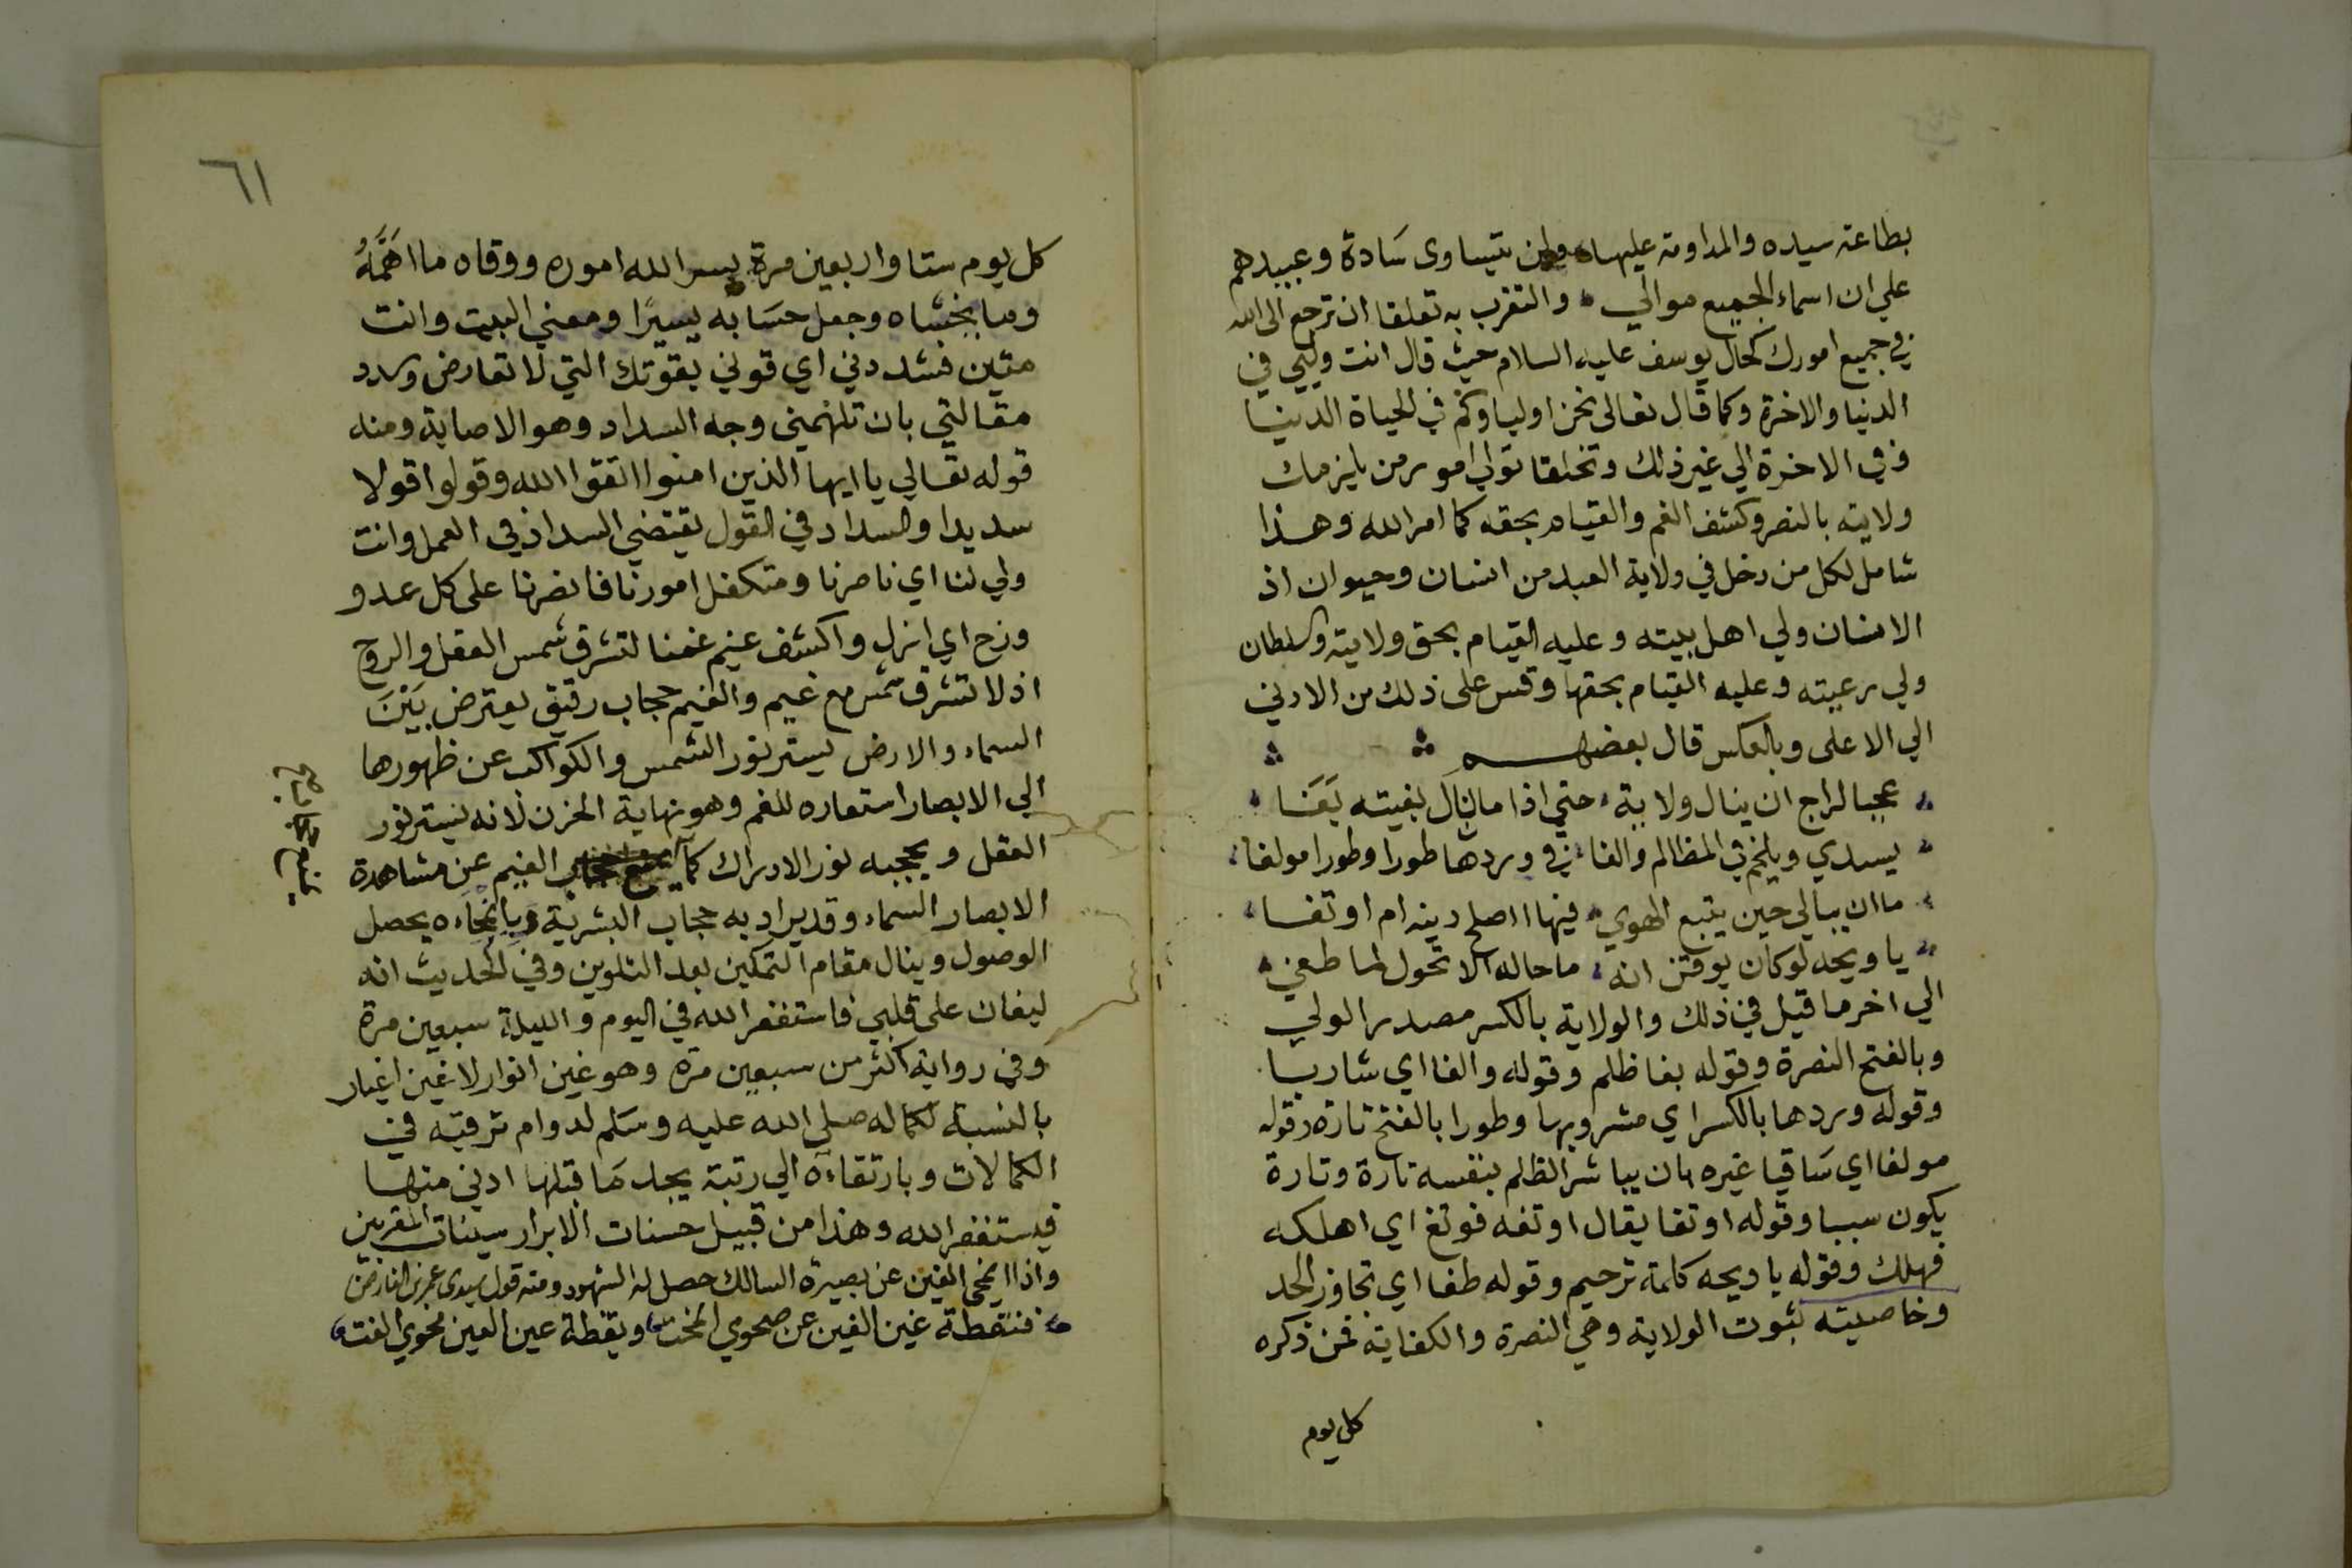 بطاعته سيده والمداومة عليها ولن يتساوى سَادة وعبيدهم
علي ان اسماء الجميع موالي والتقرب به تعلقا ان ترجع الى الله
في جميع امورك كحال يوسف عليه السلام حيث قال انت وليي في
الدنيا والاخرة وكما قال تعالى نحن اولياوكم في الحياة الدنيا
وفي الاخرة الي غير ذلك وتخلقا تولي امور من يلزمك
ولايته بالنصر وكشف الغم والقيام بحقه كما امر الله وهذا
شامل لكل من دخل في ولاية العبد من انسان وحيوان اذ
الانسان ولي اهل بيته وعليه القيام بحق ولايته والسلطان
ولي رعيته وعليه القيام بحقها وقس على ذلك من الادني
الي الاعلى وبالعكس قال بعضهم
عجبا لراج ان ينال ولاية حتي اذا ما نال بغيته بَغَا
يسدي ويلحم في المظالم والغا في وردها طورا وطورا مولغا
ما ان يبالي حين يتبع الهوي فيها ااصلح دينه ام اوتغا
يا ويحه لوكان يوقن انه ما حاله الا تحول لما طغي
الي اخر ما قيل في ذلك والولاية بالكسر مصدر الولي
وبالفتح النصرة وقوله بغا ظلم وقوله والغا اي شاربا
وقوله وردها بالكسر اي مشروبها وطورا بالفتح تارة وقوله
مولغا اي سَاقيا غيره بان يباشر الظلم بنفسه تارة وتارة
يكون سببا وقوله اوتغا يقال اوتغه فوتغ اي اهلكه
فهلك وقوله يا ويحه كلمة ترحيم وقوله طغا اي تجاوز الحد
وخاصيته ثبوت الولاية وهي النصرة والكفاية فمن ذكره
كل يوم
٦١
كل يوم ستا واربعين مرة يسر الله اموره ووقاه ما اهَمَّهُ
وما يخشاه وجعل حسَابه يسيرًا ومعني البيت وانت
متين فشددني اي قوني بقوتك التي لا تعارض وسدد
مقالتي بان تلهمني وجه السداد وهو الاصابة ومنه
قوله تعالي يا ايها الذين امنوا اتقوا الله وقولوا قولا
سديدا والسداد في القول يقتضي السداد في العمل وانت
ولي لنا اي ناصرنا ومتكفل امورنا فانصرنا على كل عدو
وزح اي ازل واكشف غيم غمنا لتشرق شمس العقل والروح
اذ لا تشرق شمس مع غيم والغيم حجاب رقيق يعترض بَيْنَ
السماء والارض يستر نور الشمس والكواكب عن ظهورها
الي الابصار استعاره للغم وهو نهاية الحزن لانه يستر نور
العقل ويحجبه نور الادراك كما الغيم عن مشاهدة
الابصار السماء وقد يراد به حجاب البشرية وبانمحاءه يحصل
الوصول وينال مقام التمكين بعد التلوين وفي الحديث انه
ليغان على قلبي فاستغفر الله في اليوم والليلة سبعين مرة
وفي رواية اكثر من سبعين مرة وهو غين انوار لا غين اغيار
بالنسبة لكماله صلي الله عليه وسَلم لدوام ترقيه في
الكمالات وبارتقاءه الي رتبة يجد مَا قبلها ادني منها
فيستغفر الله وهذا من قبيل حسنات الابرار سيئات المقربين
واذا انمحى الغين عن بصيرة السالك حصل له الشهود ومنه قول سيدى عمر بن الفارض
فنقطة غين الغين عن صحوي انمحت ويقظة عين العين محوي الغت